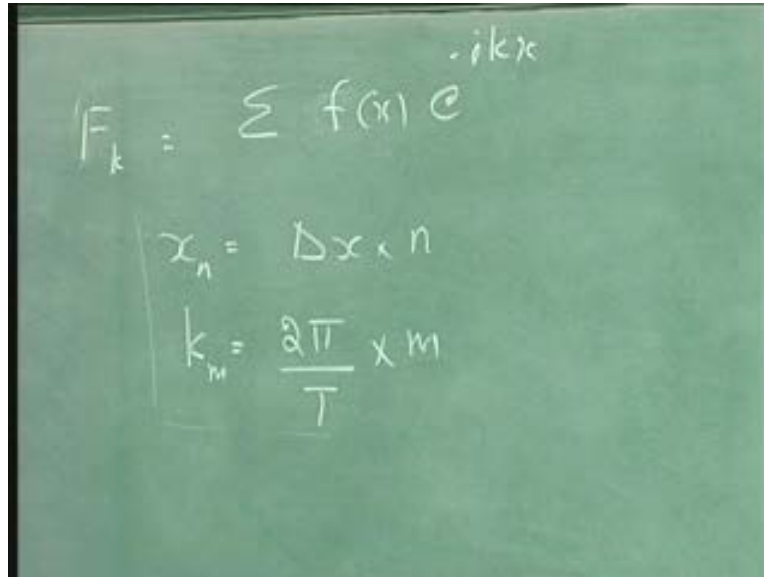 F_k = Σ f(x) e^{-ikx}
x_n = Δx × n
k_m = 2π/T × m